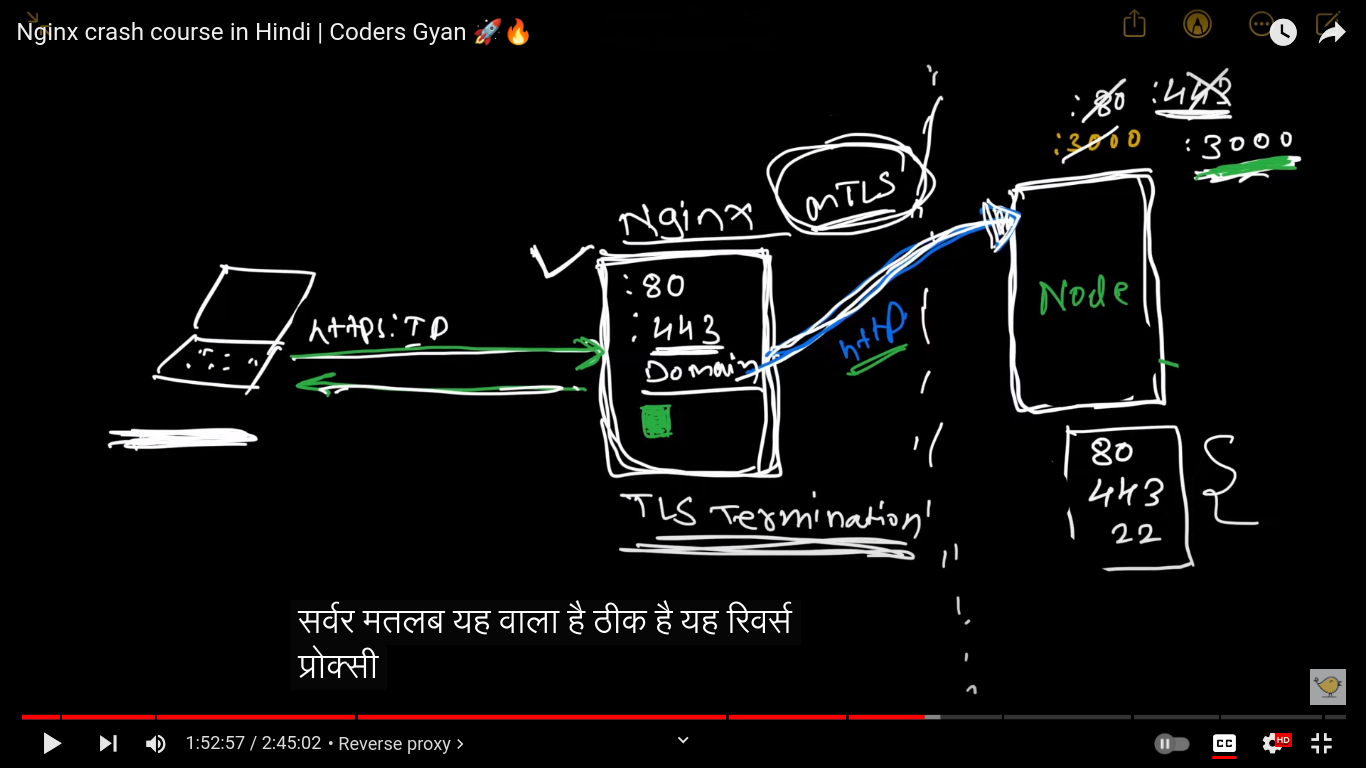 Nginx crash course in Hindi | Coders Gyan 🚀🔥
:80 :443
:3000 :3000
mTLS
Nginx
:80
:443
Domain
https: TD
http
Node
80
443
22
TLS Termination
सर्वर मतलब यह वाला है ठीक है यह रिवर्स
प्रोक्सी
1:52:57 / 2:45:02 • Reverse proxy >
CC
HD